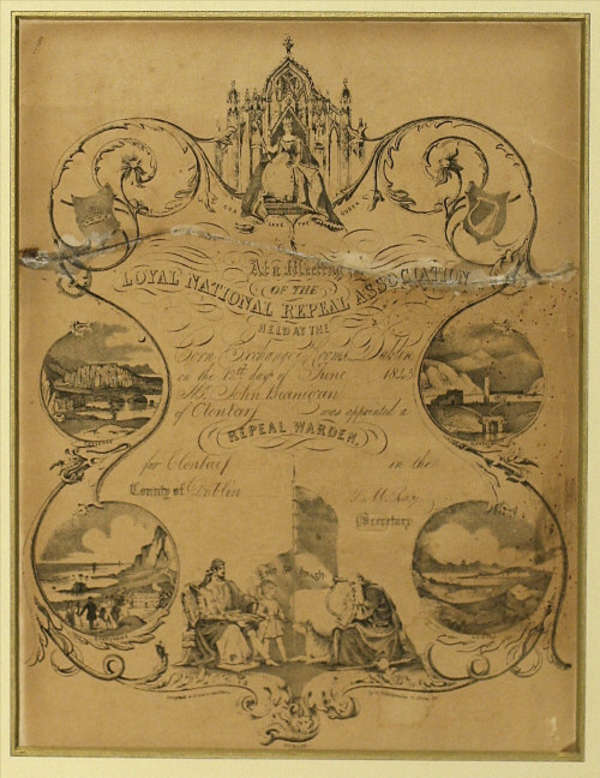 GOD SAVE THE QUEEN
At a Meeting
OF THE
LOYAL NATIONAL REPEAL ASSOCIATION
HELD AT THE
Corn Exchange Rooms Dublin
on the 12th day of June 1843
Mr. John
of Clontarf was appointed a
REPEAL WARDEN,
for Clontarf in the
County of Dublin
Secretary